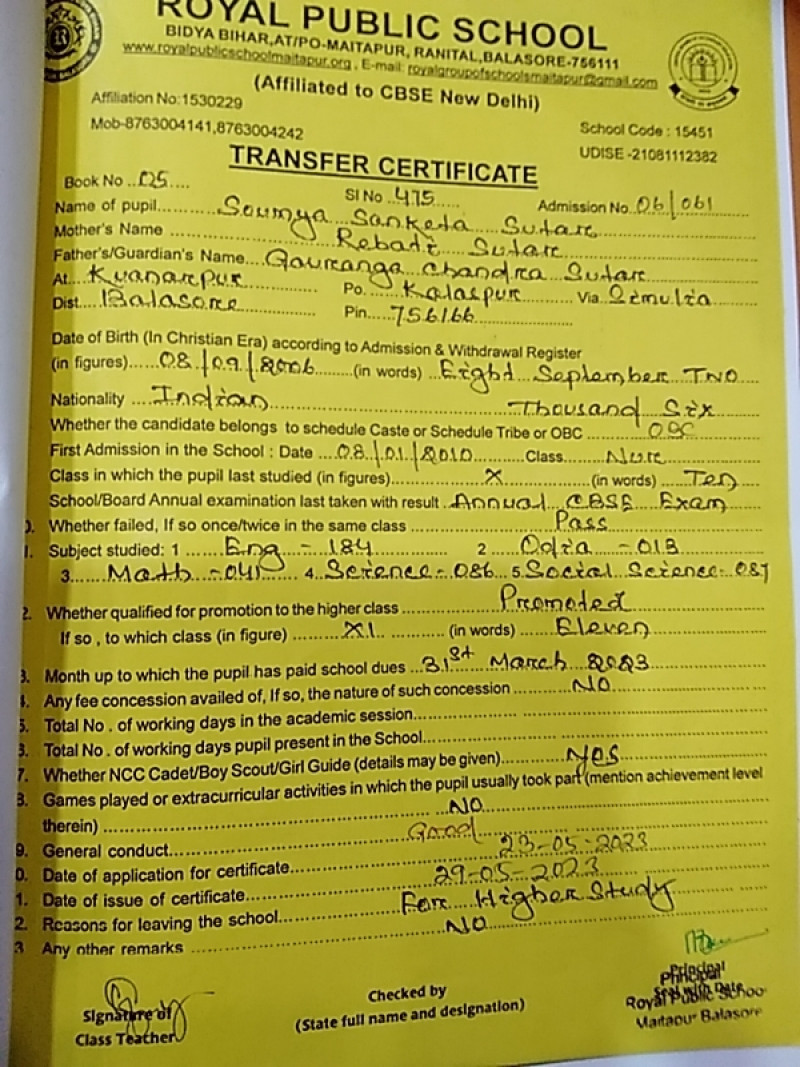 ROYAL PUBLIC SCHOOL
BIDYA BIHAR,AT/PO-MAITAPUR, RANITAL,BALASORE-756111
www.royalpublicschoolmaitapur.org , E-mail: royalgroupofschoolsmaitapur@gmail.com
(Affiliated to CBSE New Delhi)
Affiliation No:1530229
Mob-8763004141,8763004242
School Code : 15451
UDISE -21081112382
TRANSFER CERTIFICATE
Book No ..05.... Sl No ..475...... Admission No..06/061
Name of pupil......Soumya Sanketa Sutar
Mother's Name ........Rebati Sutar
Father's/Guardian's Name...Gouranga Chandra Sutar
At...Kuanarpur Po....Kalaspur Via...Simulia
Dist....Balasore Pin.......756166
Date of Birth (In Christian Era) according to Admission & Withdrawal Register
(in figures).....08/09/2006 (in words) ..Eight September Two
Nationality ....Indian Thousand Six
Whether the candidate belongs to schedule Caste or Schedule Tribe or OBC ....OBC
First Admission in the School : Date ...08/01/2010 Class......Nur
Class in which the pupil last studied (in figures)......X (in words) ...Ten
School/Board Annual examination last taken with result ..Annual CBSE Exam
0. Whether failed, If so once/twice in the same class ......Pass
1. Subject studied: 1 .....Eng - 184 2 .....Odia - 013
3......Math - 041 4..Science - 086 5..Social Science - 087
2. Whether qualified for promotion to the higher class ......Promoted
If so , to which class (in figure) ......XI (in words) .....Eleven
3. Month up to which the pupil has paid school dues ..31st March 2023
4. Any fee concession availed of, If so, the nature of such concession ......NO
5. Total No . of working days in the academic session......
6. Total No . of working days pupil present in the School......
7. Whether NCC Cadet/Boy Scout/Girl Guide (details may be given)......Yes
8. Games played or extracurricular activities in which the pupil usually took part (mention achievement level
therein) ......NO
9. General conduct......Good
0. Date of application for certificate......23-05-2023
1. Date of issue of certificate......29-05-2023
2. Reasons for leaving the school......For Higher Study
3 Any other remarks ......NO
Signature of
Class Teacher
Checked by
(State full name and designation)
Principal
Seal with Date
Principal
Royal Public School
Maitapur Balasore